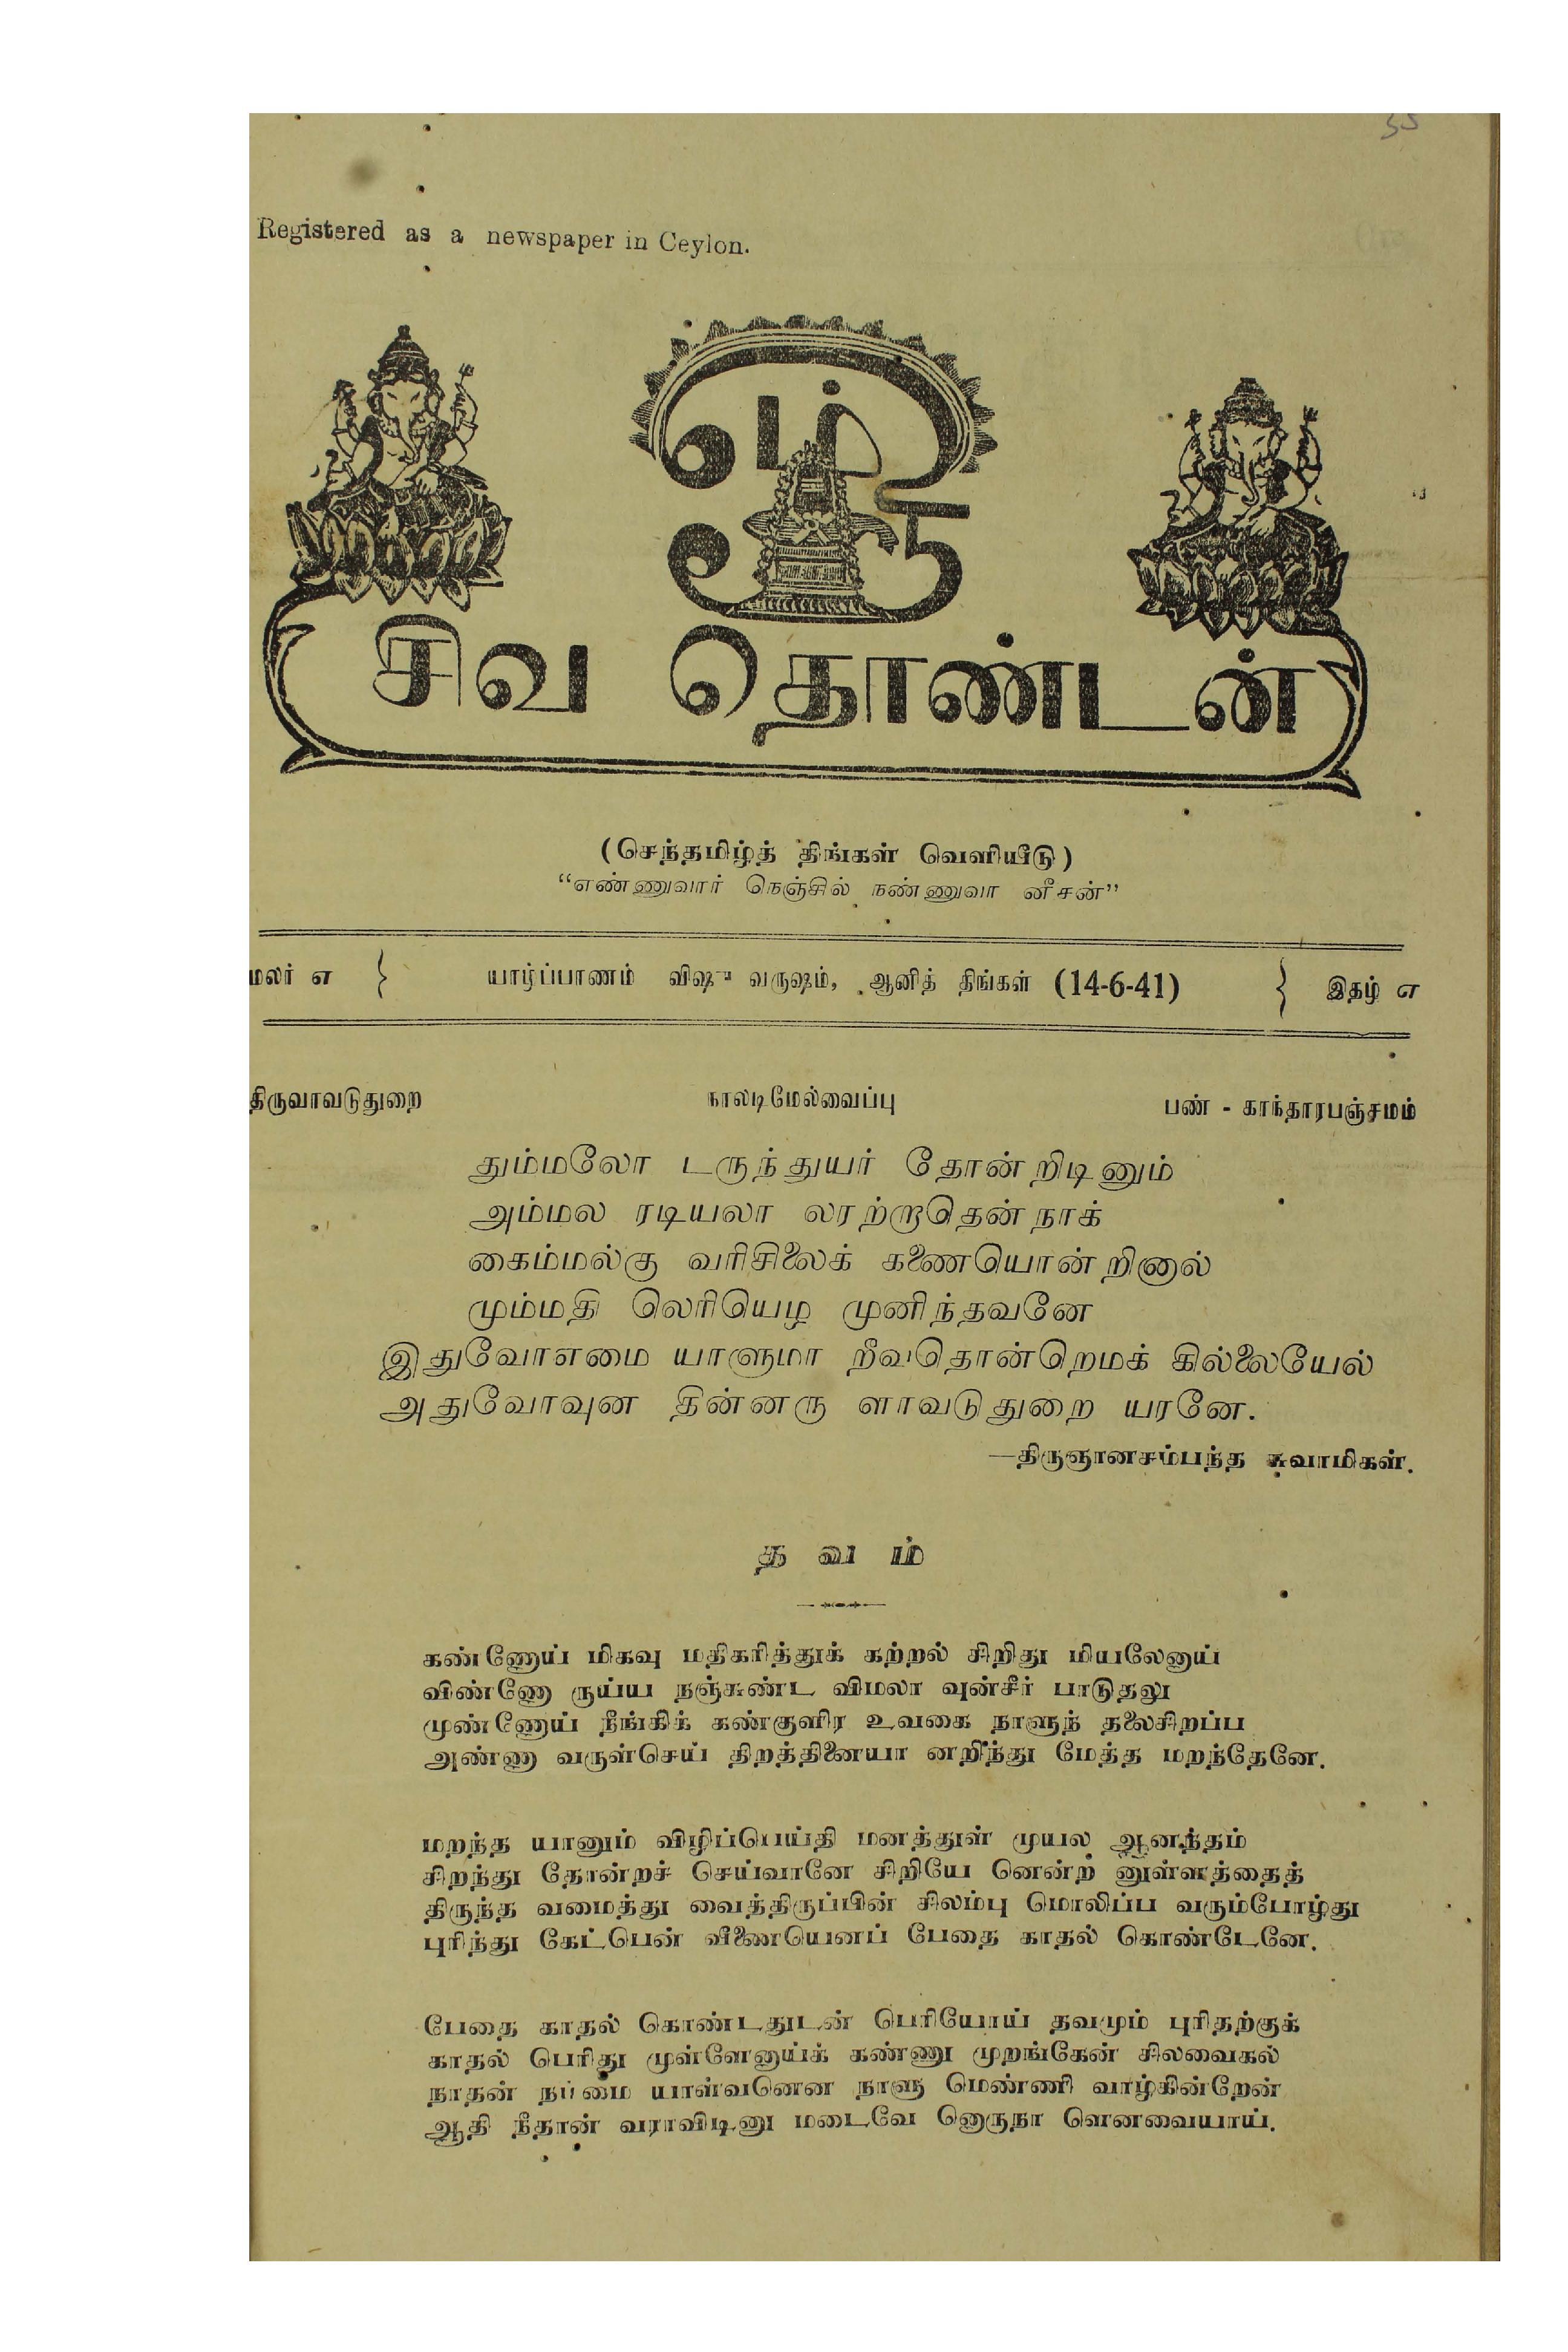 Registered as a newspaper in Ceylon.
ஓம்
சிவ தொண்டன்
(செந்தமிழ்த் திங்கள் வெளியீடு)
“எண்ணுவார் நெஞ்சில் நண்ணுவா னீசன்”
மலர் எ } யாழ்ப்பாணம் விஷு வருஷம், ஆனித் திங்கள் (14-6-41) } இதழ் எ
திருவாவடுதுறை நாலடிமேல்வைப்பு பண் - காந்தாரபஞ்சமம்
தும்மலோ டருந்துயர் தோன்றிடினும்
அம்மல ரடியலா லரற்றாதென்நாக்
கைம்மல்கு வரிசிலைக் கணையொன்றினால்
மும்மதி லெரியெழ முனிந்தவனே
இதுவோஎமை யாளுமா றீவதொன்றெமக் கில்லையேல்
அதுவோவுன தின்னரு ளாவடுதுறை யரனே.
—திருஞானசம்பந்த சுவாமிகள்.
த வ ம்
கண்ணேய் மிகவு மதிகரித்துக் கற்றல் சிறிது மியலேனாய்
விண்ணோ ருய்ய நஞ்சுண்ட விமலா வுன்சீர் பாடுதலு
முண்ணேய் நீங்கிக் கண்குளிர உவகை நாளுந் தலைசிறப்ப
அண்ணா வருள்செய் திறத்தினையா னறிந்து மேத்த மறந்தேனே.
மறந்த யானும் விழிப்பெய்தி மனத்துள் முயல ஆனந்தம்
சிறந்து தோன்றச் செய்வானே சிறியே னென்ற னுள்ளத்தைத்
திருந்த வமைத்து வைத்திருப்பின் சிலம்பு மொலிப்ப வரும்போழ்து
புரிந்து கேட்பென் வீணையெனப் பேதை காதல் கொண்டேனே.
பேதை காதல் கொண்டதுடன் பெரியோய் தவமும் புரிதற்குக்
காதல் பெரிது முள்ளேனாய்க் கண்ணு முறங்கேன் சிலவைகல்
நாதன் நம்மை யாள்வனென நாளு மெண்ணி வாழ்கின்றேன்
ஆதி நீதான் வராவிடினு மடைவே னொருநா ளெனவையாய்.